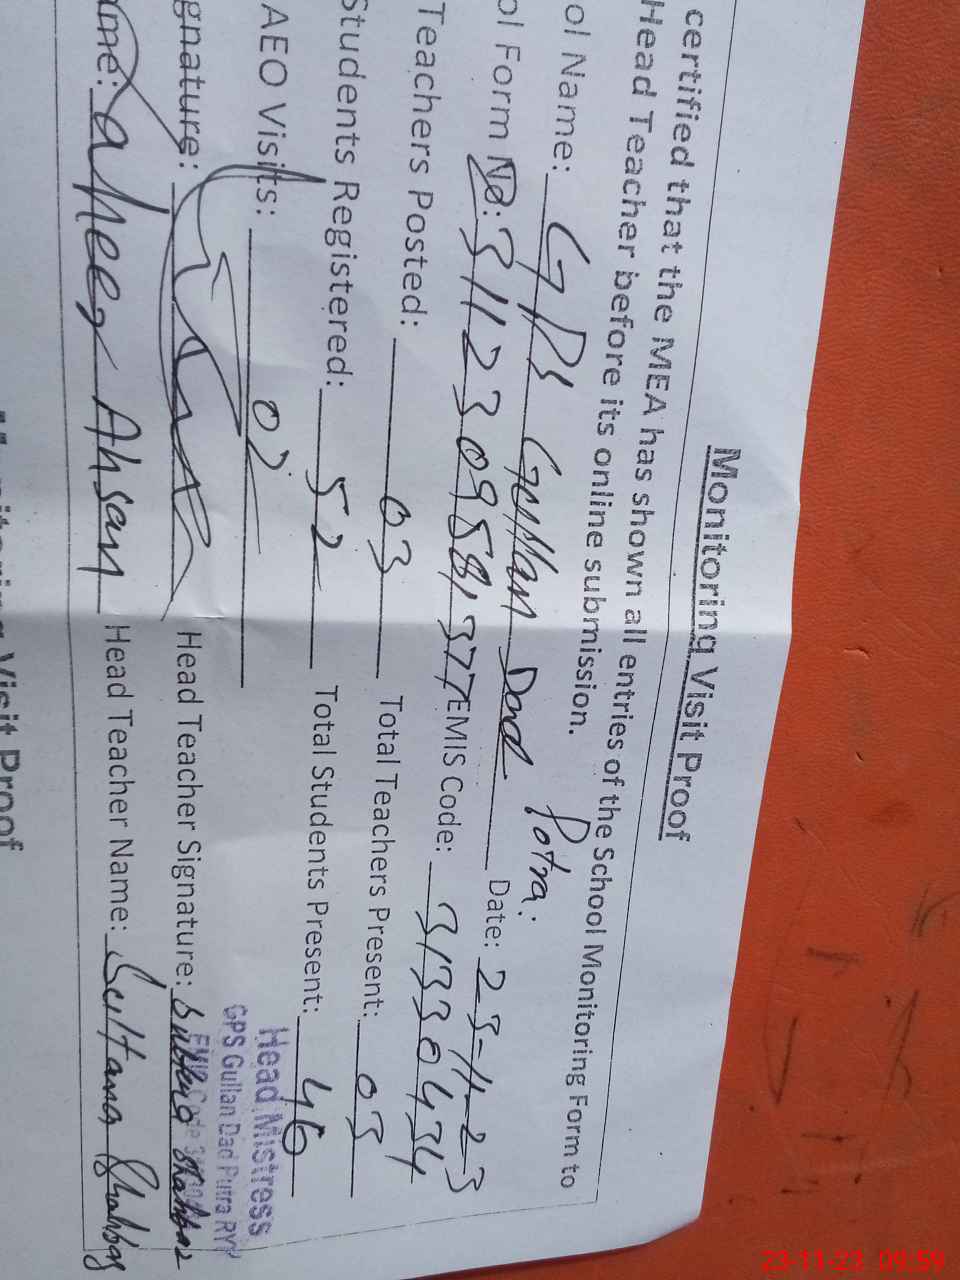 Monitoring Visit Proof
certified that the MEA has shown all entries of the School Monitoring Form to
Head Teacher before its online submission.
ol Name: GPS Gullan Dad Potra: Date: 23-11-23
ol Form No: 3112309581377 EMIS Code: 31330434
Teachers Posted: 03 Total Teachers Present: 03
Students Registered: 52 Total Students Present: 46
AEO Visits: 02
Head Mistress
GPS Gullan Dad Putra RYK
EMIS Code
gnature: Head Teacher Signature:
ame: Ahsan Head Teacher Name: Sultana
Visit Proof
23-11-23 09:59